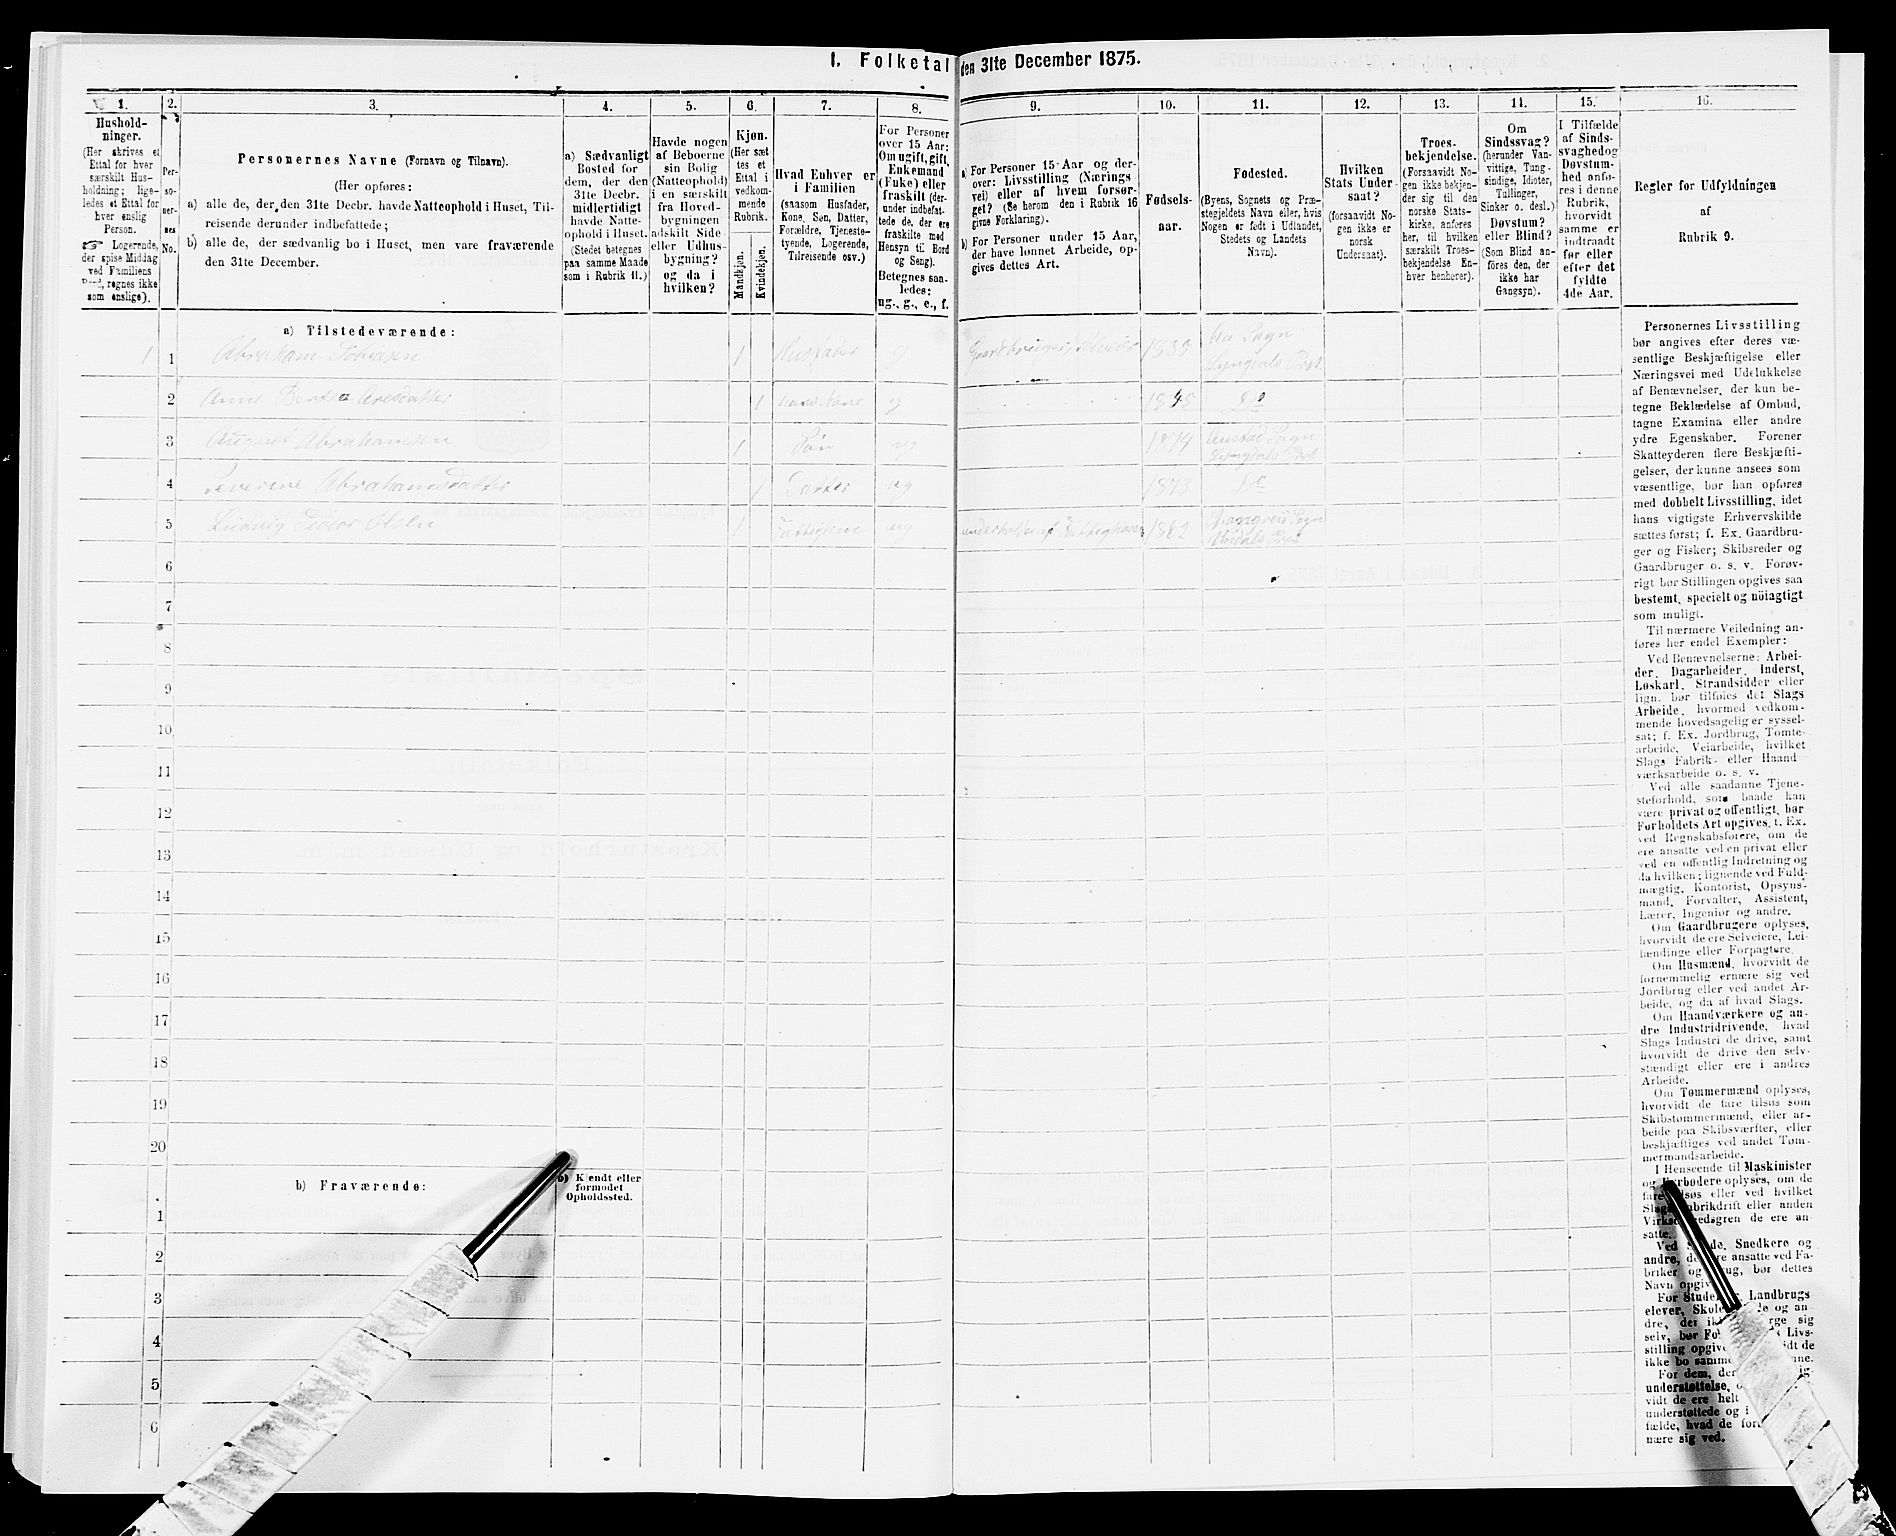 I. Folketal den 31te December 1875.
1.
2.
3.
4.
5.
6.
7.
8.
9.
10.
11.
12.
13.
14.
15.
16.
Hushold-
ninger.
(Her skrives et
Ettal for hver
særskilt Hus-
holdning; lige-
ledes et Ettal for
hver enslig
Person.
☞ Logerende,
der spise Middag
ved Familiens
Bord, regnes ikke
som enslige).
Per-
so-
ner-
nes
No.
Personernes Navne (Fornavn og Tilnavn).
(Her opføres:
a) alle de, der den 31te Decbr. havde Natteophold i Huset, Til-
reisende derunder indbefattede;
b) alle de, der sædvanlig bo i Huset, men vare fraværende
den 31te December.
a) Sædvanligt
Bosted for
dem, der den
31te Decbr.
midlertidigt
havde Natte-
ophold i Huset.
(Stedet betegnes
paa samme Maade
som i Rubrik 11.)
Havde nogen
af Beboerne
sin Bolig
(Natteophold)
i en særskilt
fra Hoved-
bygningen
adskilt Side-
eller Udhus-
bygning?
og da i
hvilken?
Kjøn.
(Her sæt
tes et
Ettal i
vedkom-
mende
Rubrik.
Mandkjøn.
Kvindekjøn.
Hvad Enhver er
i Familien
(saasom Husfader,
Kone, Søn, Datter,
Forældre, Tjeneste-
tyende, Logerende,
Tilreisende osv.)
For Personer
over 15 Aar:
Om ugift, gift,
Enkemand
(Enke) eller
fraskilt (der-
under indbefat-
tede de, der ere
fraskilte med
Hensyn til Bord
og Seng).
Betegnes saa-
ledes:
ug., g., e., f.
a) For Personer 15 Aar og der-
over: Livsstilling (Nærings
vei) eller af hvem forsør-
get? (Se herom den i Rubrik 16
givne Forklaring).
b) For Personer under 15 Aar,
der have lønnet Arbeide, op-
gives dettes Art.
Fødsels-
aar.
Fødested.
(Byens, Sognets og Præ-
stegjeldets Navn eller, hvis
Nogen er født i Udlandet,
Stedets og Landets
Navn).
Hvilken
Stats Under-
saat?
(forsaavidt No-
gen ikke er
norsk
Undersaat).
Troes-
bekjendelse.
(Forsaavidt No-
gen ikke bekjen-
der sig til den
norske Stats-
kirke, anføres
her, til hvilken
særskilt Troes-
bekjendelse En-
hver henhører).
Om
Sindssvag?
(herunder Van-
vittige, Tung-
sindige, Idioter,
Tullinger,
Sinker o. desl.)
Døvstum?
eller Blind?
(Som Blind an-
føres den, der
ikke har
Gangsyn).
I Tilfælde
af Sinds-
svaghed og
Døvstum-
hed anfø-
res i denne
Rubrik,
hvorvidt
samme er
indtraadt
før eller
efter det
fyldte
4de Aar.
Regler for Udfyldningen
af
Rubrik 9.
a) Tilstedeværende:
1 1 Abraham Tobiasen 1 Husfader g Gaardbruger, Selveier 1839 Au Sogn
Lyngdals Prst.
2 Anne Aresdatter 1 hans Kone g Do
3 August Abrahamsen 1 Søn ug 1874 Austad Sogn
Lyngdals Prst
4 Severine Abrahamsdatter 1 Datter ug 1873 Do
5 Ludvig Olsen 1 ug underholdes af 1862 Sogn
6
7
8
9
10
11
12
13
14
15
16
17
18
19
20
b) Fraværende:
b) Kjendt eller
formodet
Opholdssted.
1
2
3
4
5
6
Personernes Livsstilling
bør angives efter deres væ-
sentlige Beskjæftigelse eller
Næringsvei med Udelukkelse
af Benævnelser, der kun be-
tegne Beklædelse af Ombud,
tagne Examina eller andre
ydre Egenskaber. Forener
Skatteyderen flere Beskjæfti-
gelser, der kunne ansees som
væsentlige, bør han opføres
med dobbelt Livsstilling, idet
hans vigtigste Erhvervskilde
sættes først; f. Ex. Gaardbru-
ger og Fisker; Skibsreder og
Gaardbruger o. s. v. Forøv-
rigt bør Stillingen opgives saa
bestemt, specielt og nöiagtigt
som muligt.
Til nærmere Veiledning an-
føres her endel Exempler:
Ved Benævnelserne: Arbei-
der, Dagarbeider, Inderst,
Løskarl, Strandsidder eller
lign. bør tilføies det Slags
Arbeide, hvormed vedkom-
mende hovedsagelig er syssel-
sat; f. Ex. Jordbrug, Tomte-
arbeide, Veiarbeide, hvilket
Slags Fabrik- eller Haand
værksarbeide o. s. v.
Ved alle saadanne Tjene-
steforhold, som baade kan
være privat og offentligt, bør
Forholdets Art opgives, f. Ex.
ved Regnskabsførere, om de
ere ansatte ved en privat eller
ved en offentlig Indretning og
da hvilken; lignende ved Fuld-
mægtig, Kontorist, Opsyns-
mand, Forvalter, Assistent,
Lærer, Ingeniør og andre.
Om Gaardbrugere oplyses,
hvorvidt de ere Selveiere, Lei-
lændinge eller Forpagtere.
Om Husmænd, hvorvidt de
fornemmelig ernære sig ved
Jordbrug eller ved andet Ar-
beide, og da af hvad Slags.
Om Haandværkere og an-
dre Industridrivende, hvad
Slags Industri de drive, samt
hvorvidt de drive den selv-
stændigt eller ere i andres
Arbeide.
Om Tømmermænd oplyses,
hvorvidt de fare tilsøs som
Skibstømmermænd, eller ar-
beide paa Skibsværfter, eller
beskjæftiges ved andet Tøm-
mermandsarbeide.
I Henseende til Maskinister
og Fyrbødere oplyses, om de
fare tilsøs eller ved hvilket
Slags Fabrikdrift eller anden
Virksomhedsgren de ere an-
satte.
Ved Snedkere og
andre, de ere ansatte ved Fa-
briker og bør dettes
Navn opgiv
For Landbrugs
elever, Skole og an-
dre, der sig
selv, bør Livs-
stilling opgive
ikke bo samme
For dem, der
understøttelse,
vidt de ere helt
understøttede og i
fælde, hvad de
nære sig ved.